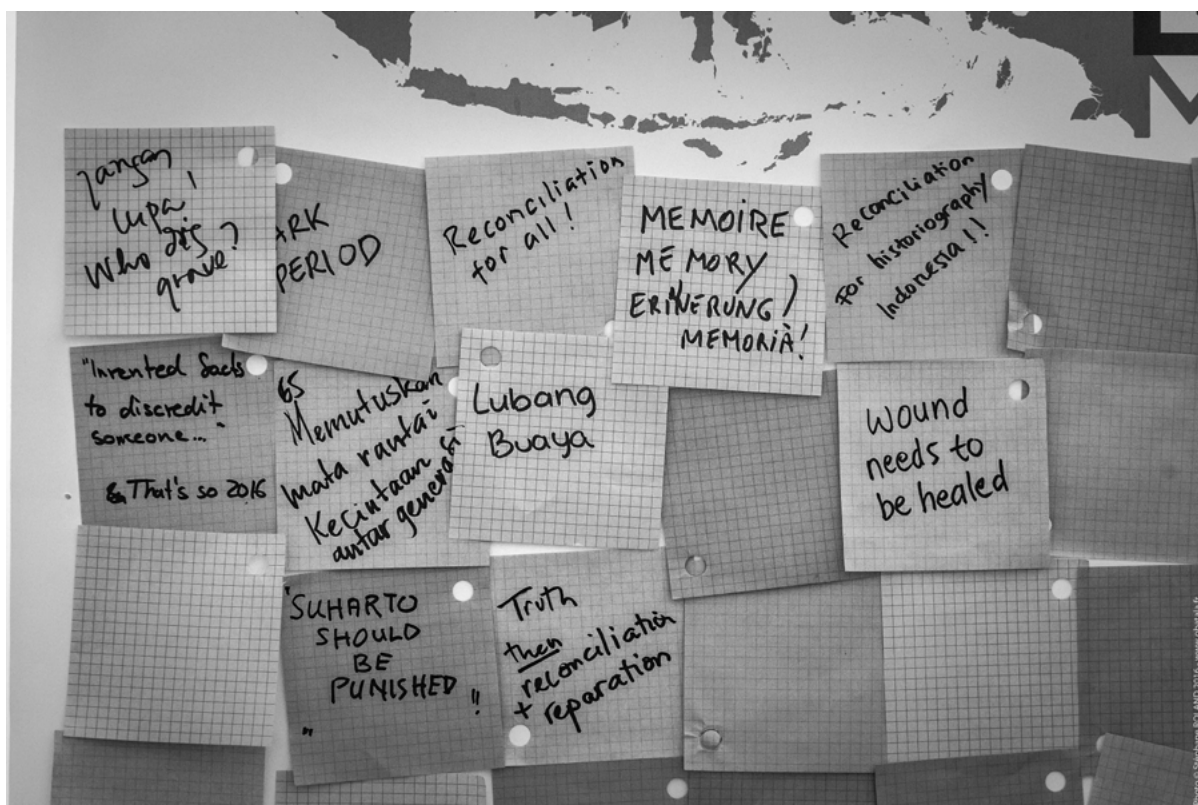 Jangan
lupa!
Who digs
grave?
ARK
PERIOD
Reconciliation
for all!
MEMOIRE
MEMORY
ERINERUNG
MEMORIÀ!
Reconciliation
For historiography
Indonesia!!
"Invented facts
to discredit
someone..."
That's so 2016
65
Memutuskan
mata rantai
Kecintaan
antar generasi
Lubang
Buaya
Wound
needs to
be healed
"SUHARTO
SHOULD
BE
PUNISHED"!!
Truth
then
reconciliation
+ reparation